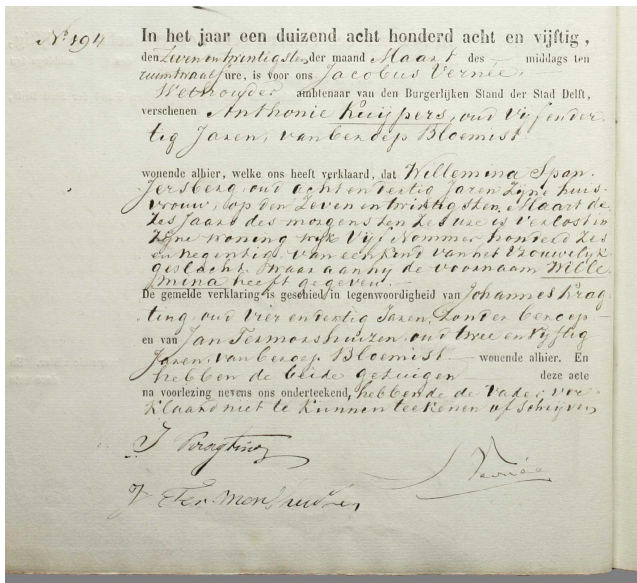 No 194
In het jaar een duizend acht honderd acht en vijftig,
den Zeven en twintigsten der maand Maart des — middags ten
ure, is voor ons Jacobus Vernée,
Wethouder ambtenaar van den Burgerlijken Stand der Stad Delft,
verschenen Anthonie Kuijpers, oud Vijf en der
tig Jaren, van beroep Bloemist
wonende alhier, welke ons heeft verklaard, dat Willemina Span
jersberg, oud acht en dertig Jaren Zijne huis
vrouw, op den Zeven en twintigsten Maart de
zes Jaars des morgens ten Zes ure is verlost in
Zijne woning wijk Vijf Nommer honderd Zes
en Negentig, van een kind van het Vrouwelijk
geslacht, waar aan hij de voornaam Wille
mina heeft gegeven.—
De gemelde verklaring is geschied in tegenwoordigheid van Johannes Krag
ting, oud vier en dertig Jaren, Zonder beroep
en van Jan Termorshuizen, oud twee en Vijftig
Jaren, van beroep Bloemist — wonende alhier. En
hebben de beide getuigen deze acte
na voorlezing nevens ons onderteekend, hebbende de Vader ver
klaard niet te kunnen teekenen of Schrijven
J Kragting
Vernée
J Ter Morshuizen